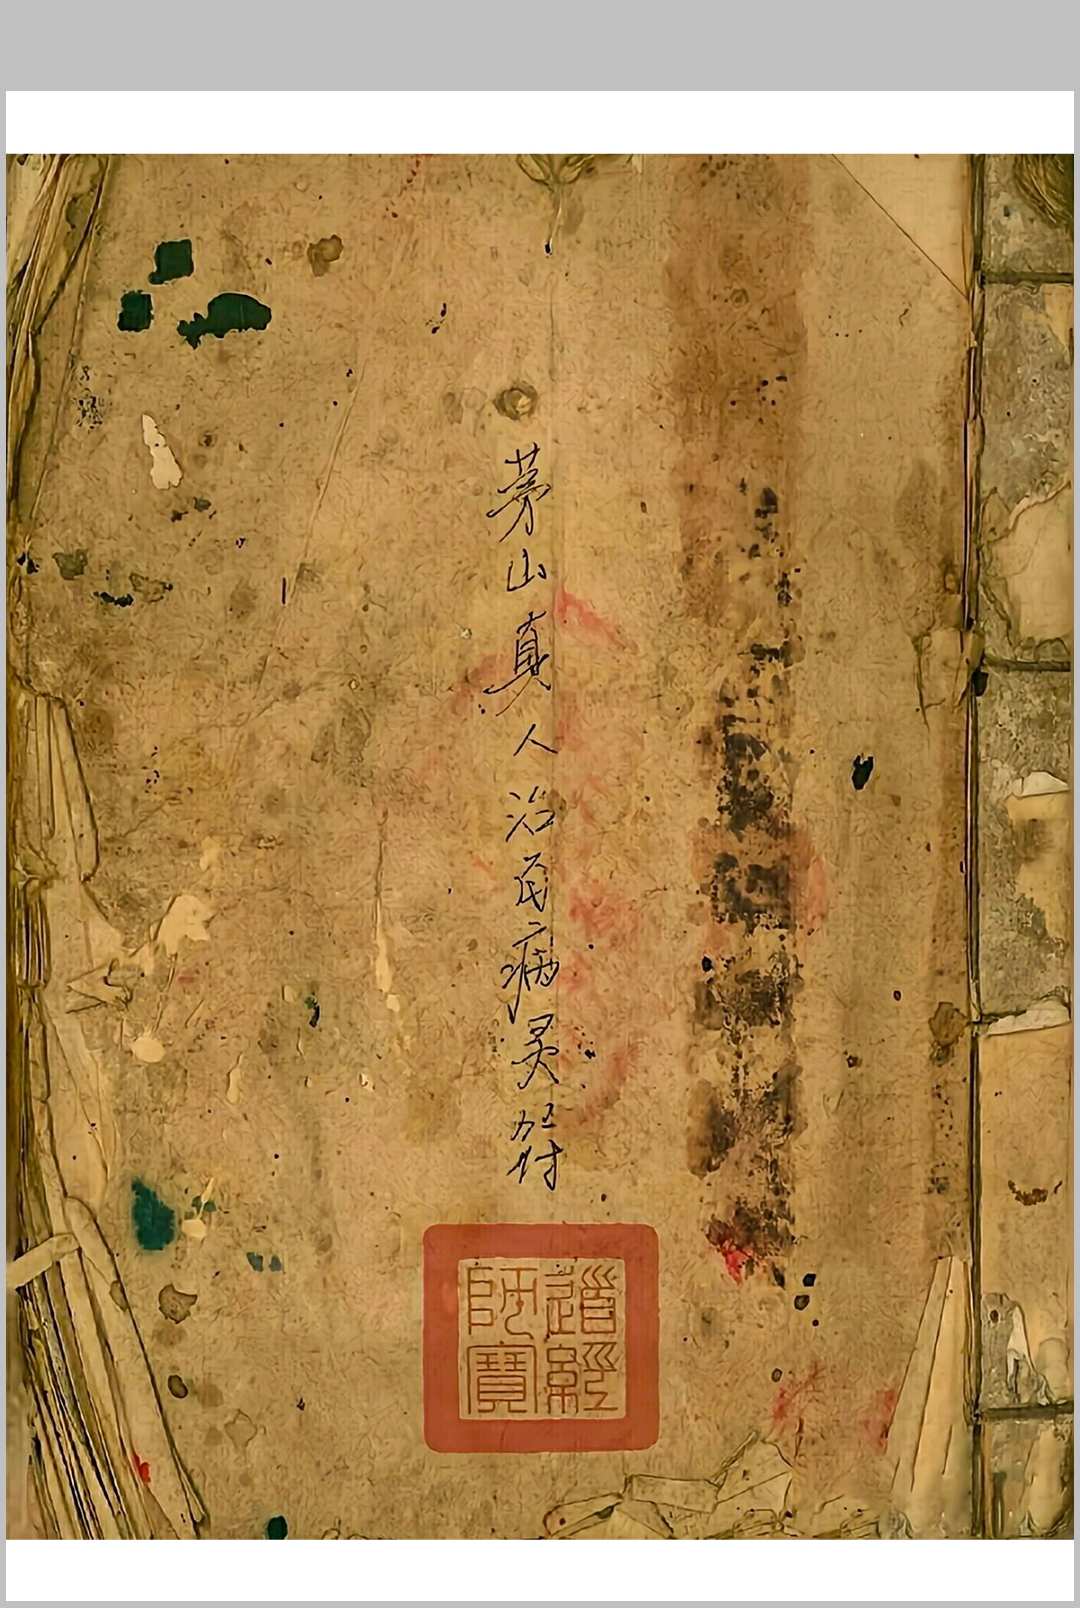 茅山真人治百病灵符
道經
師寶